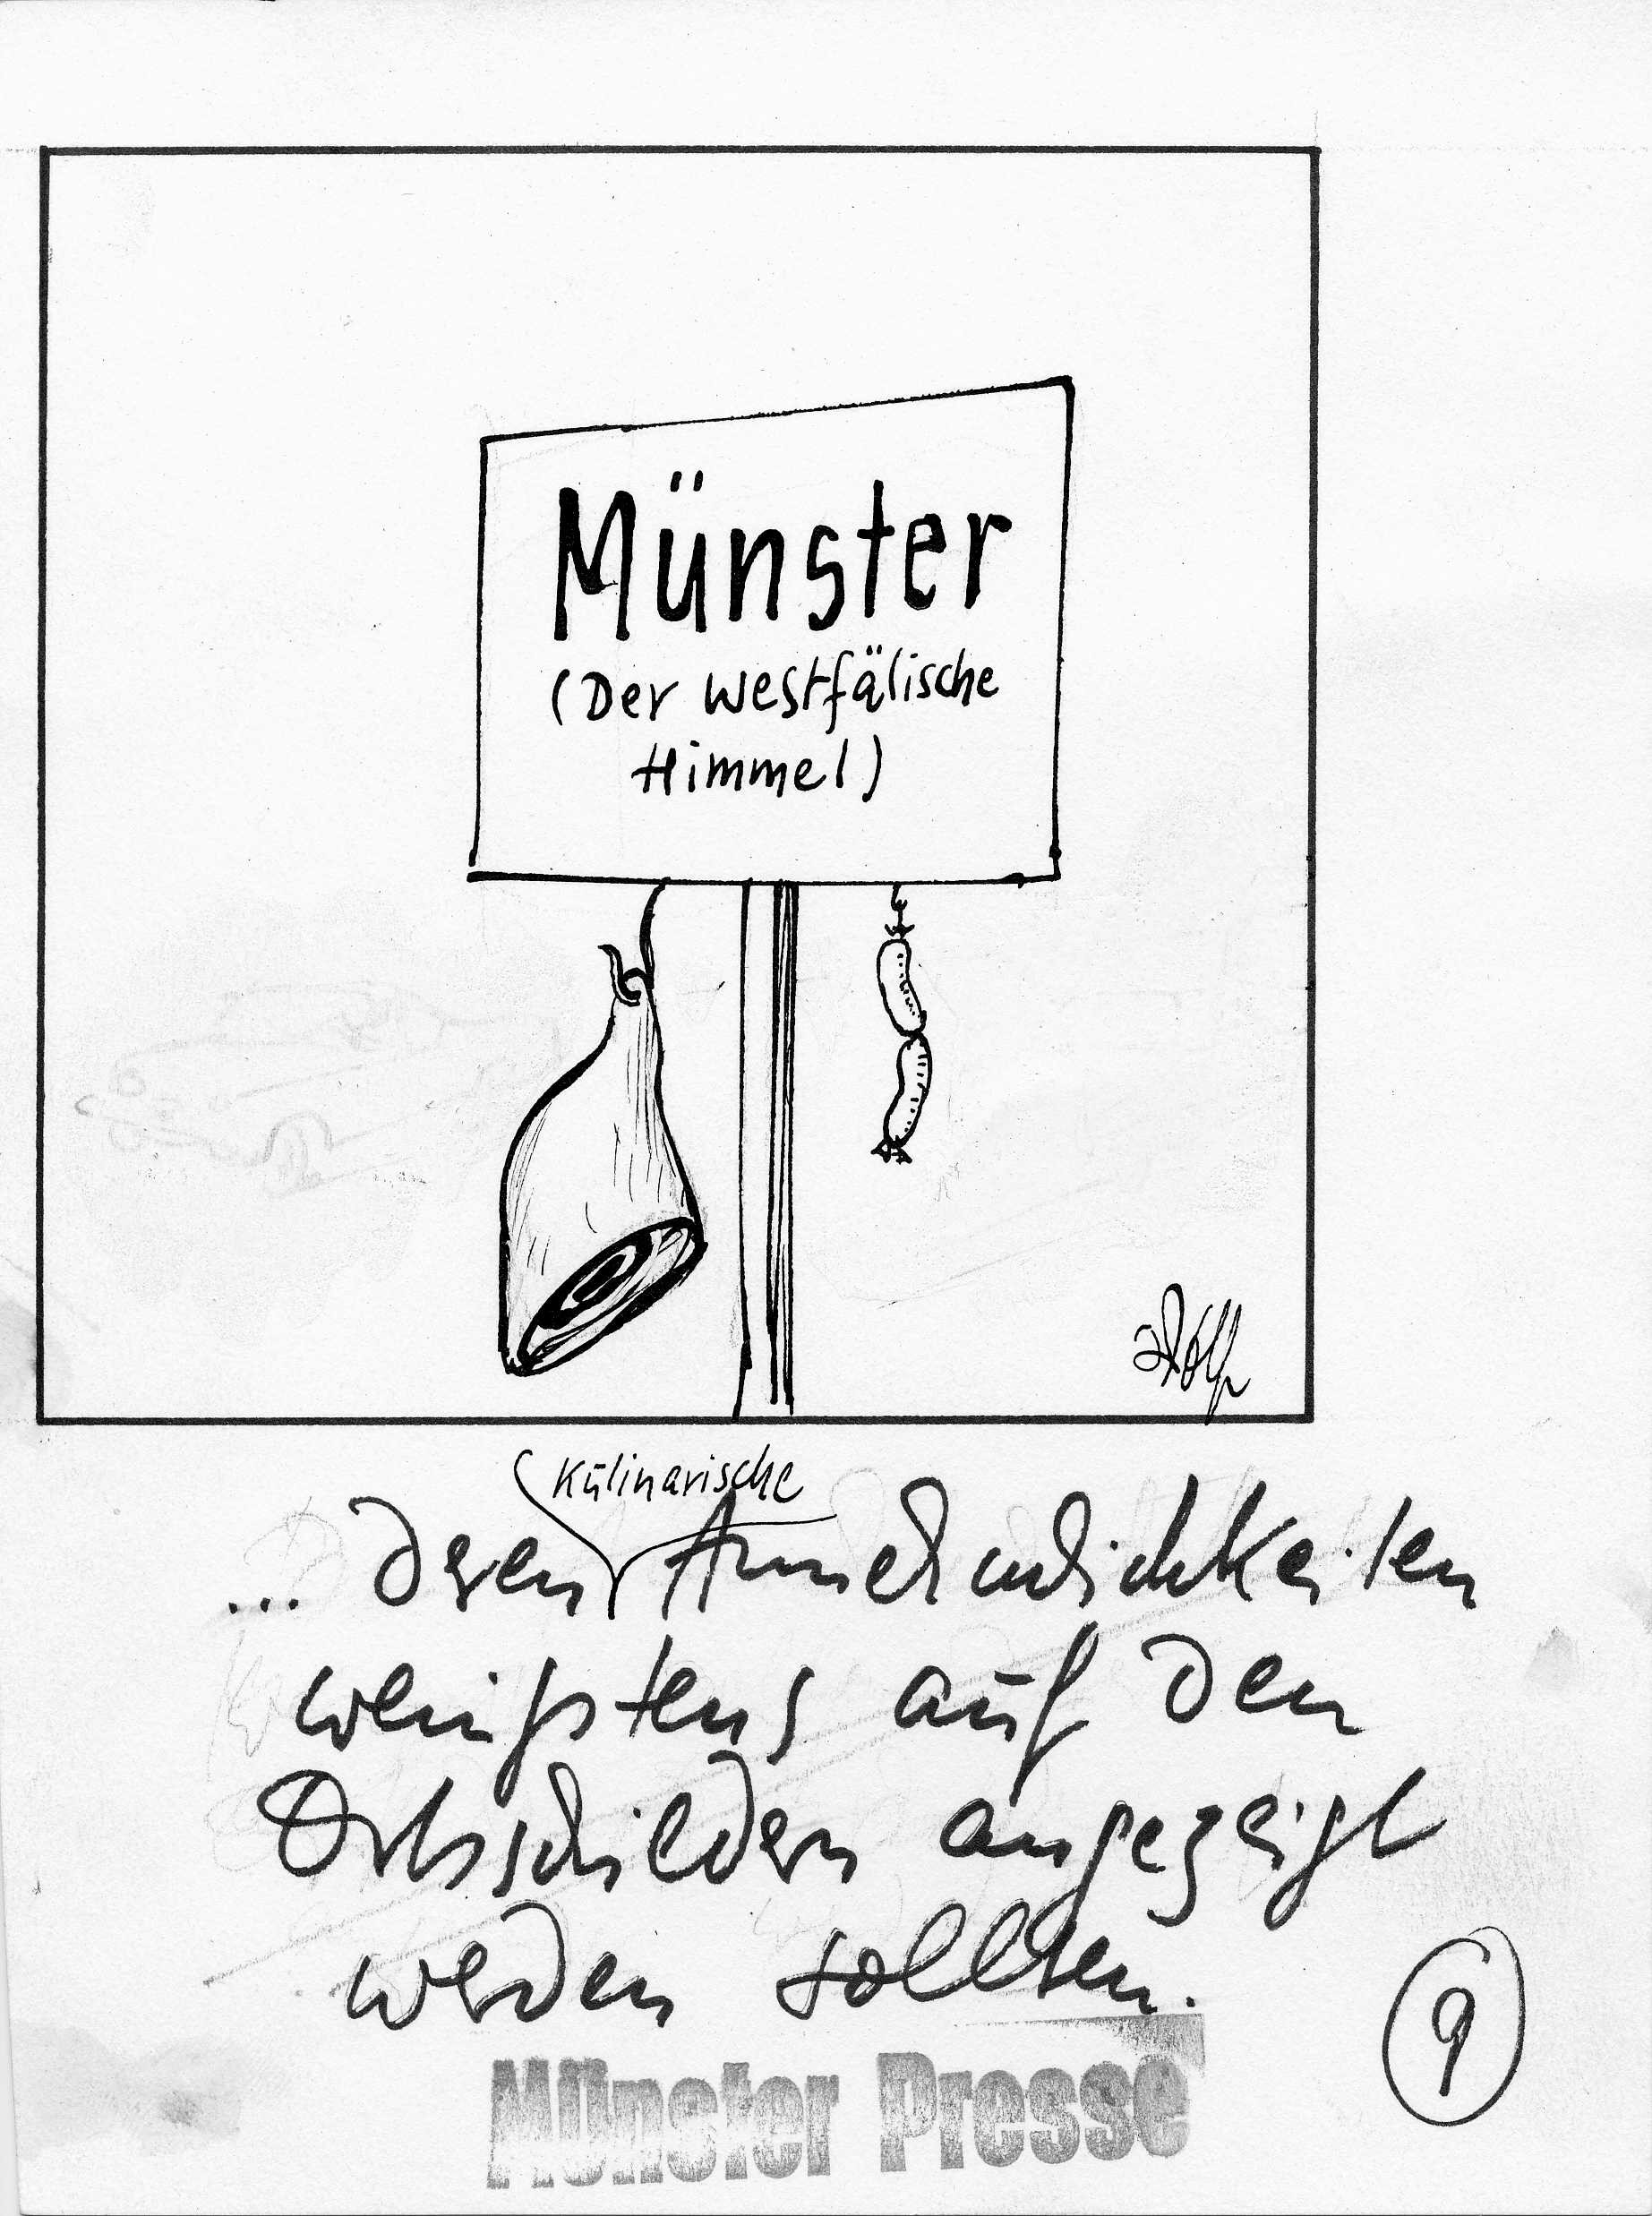 Münster
(Der Westfälische
Himmel)
Kulinarische
... deren Annehmlichkeiten
wenigstens auf den
Ortsschildern angezeigt
werden sollten.
9
Münster Presse